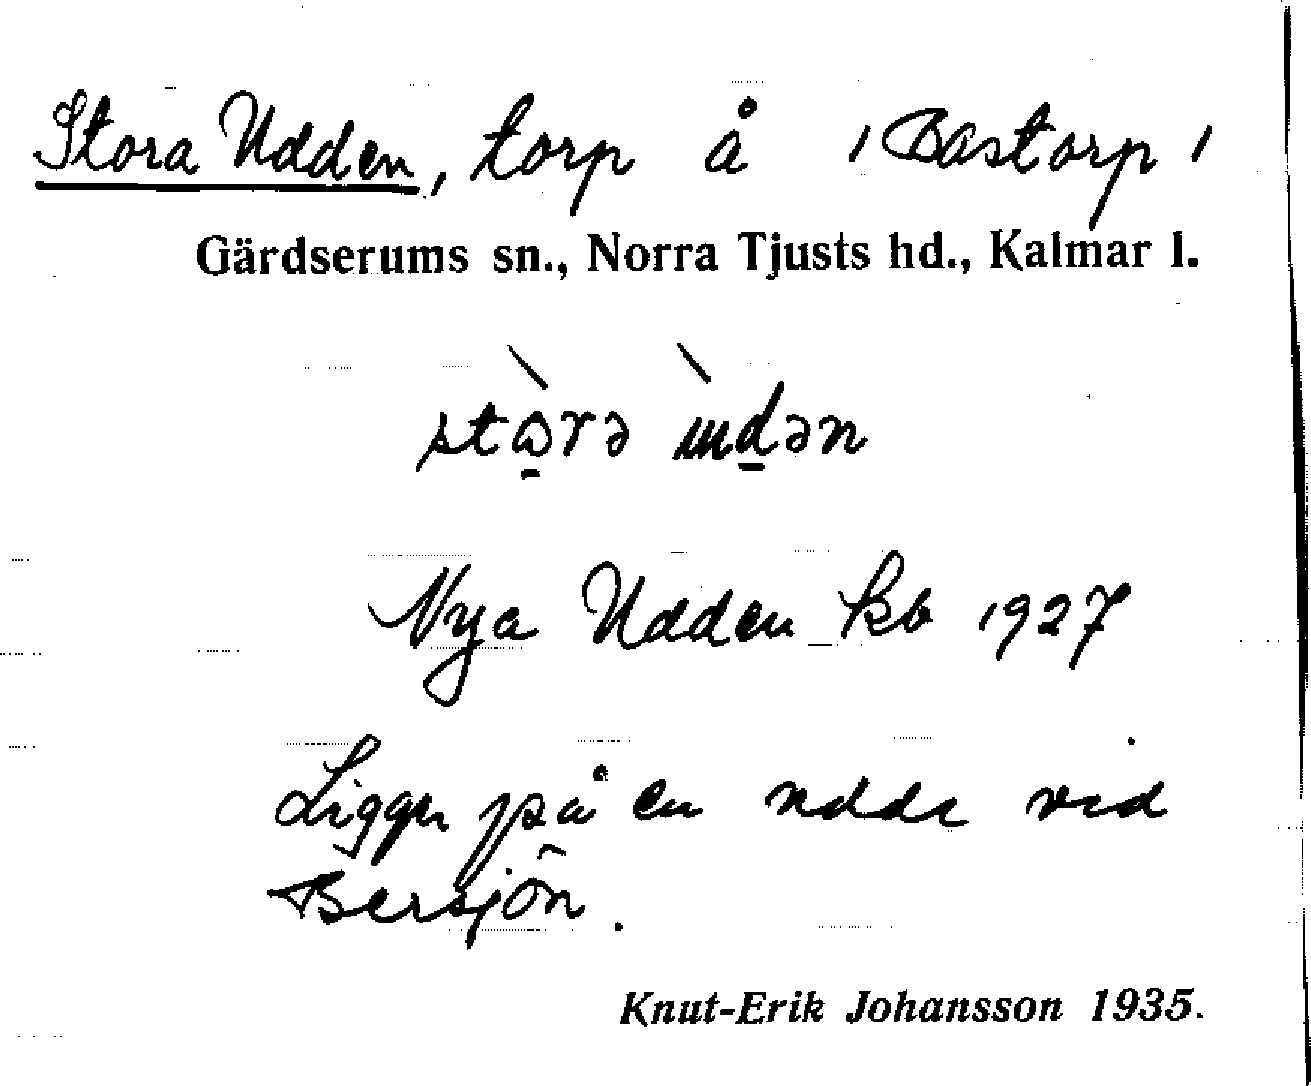 Stora Udden, torp å /Bastorp/
Gärdserums sn., Norra Tjusts hd., Kalmar l.
Nya Udden kb 1927
Ligger på en udde vid
Bersjön.
Knut-Erik Johansson 1935.